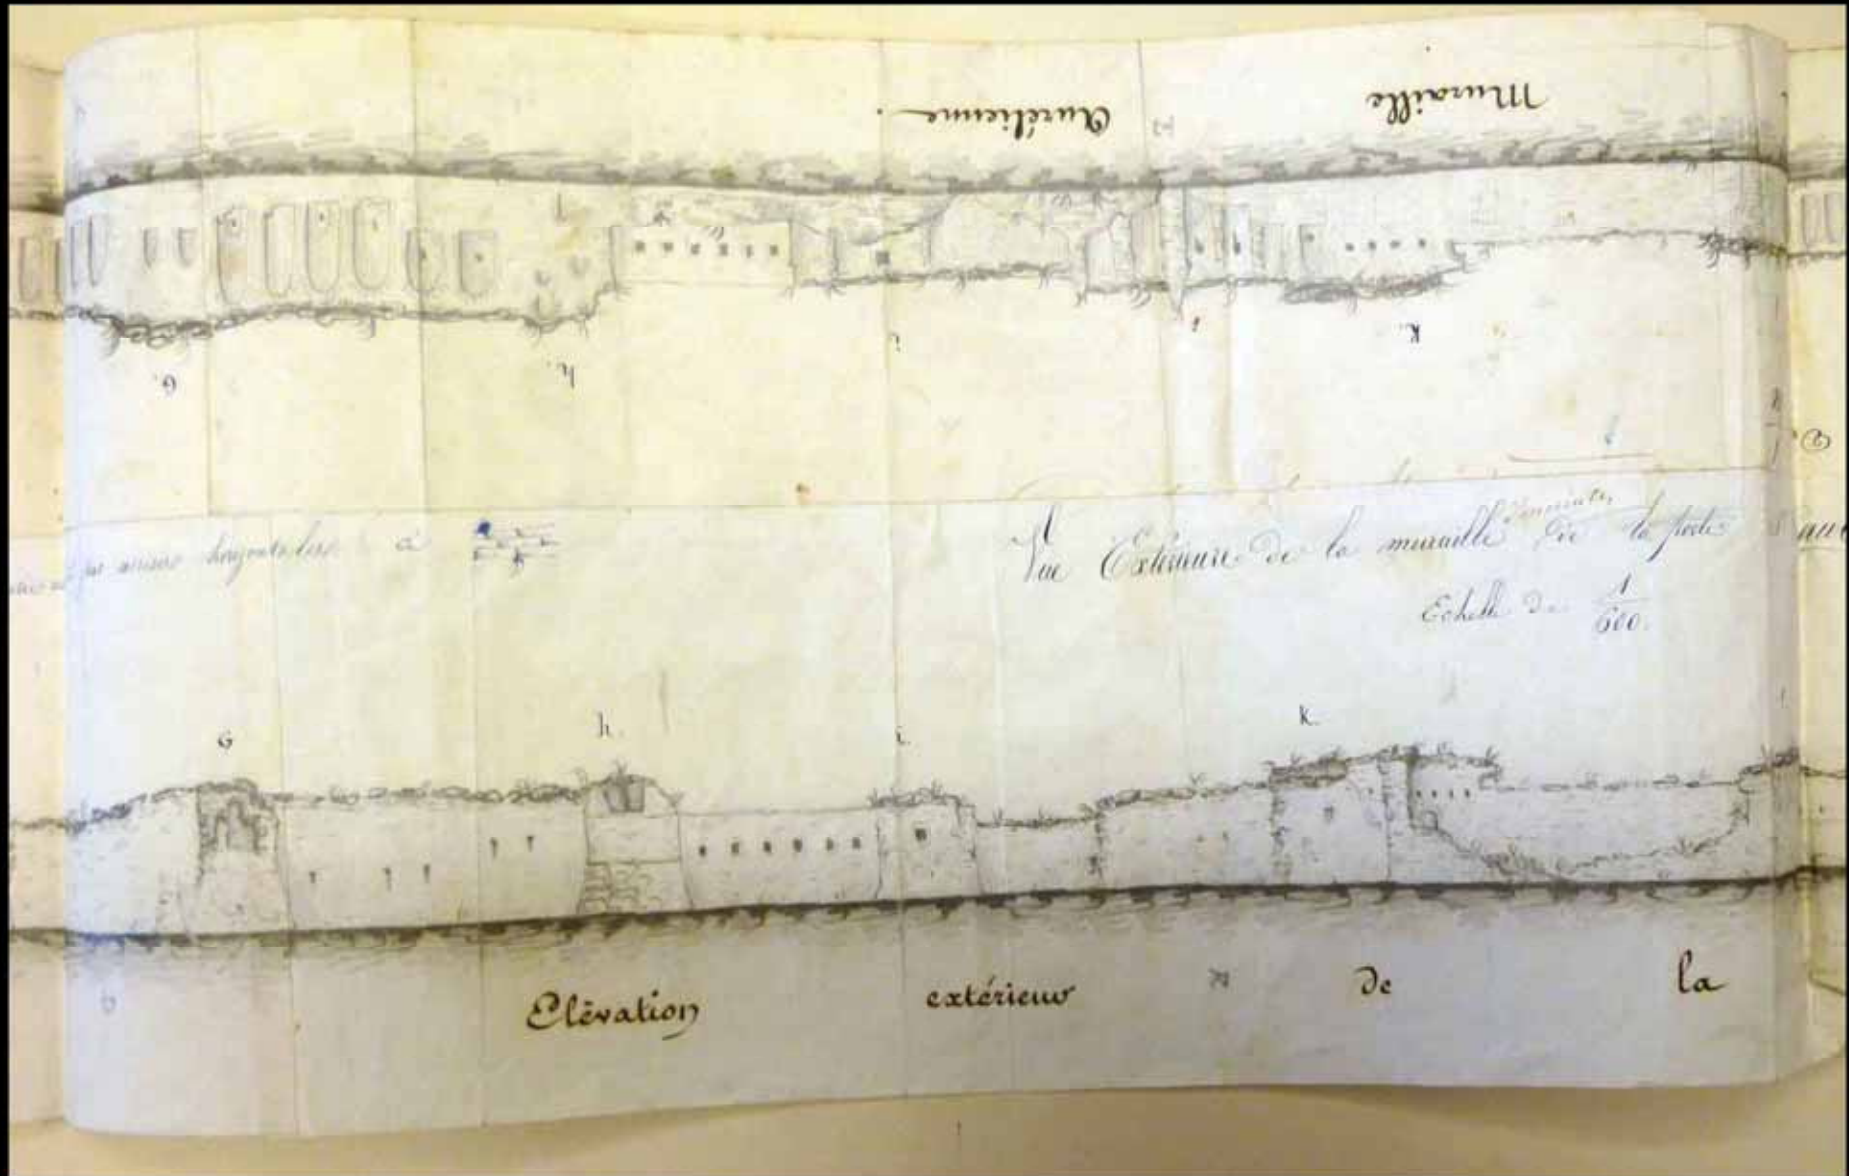 Muraille Aurélienne.
G. h. i K.
à
Vue Extérieure de la muraille de la porte
Echelle de 1/600.
G h. i. K.
Elévation extérieur de la